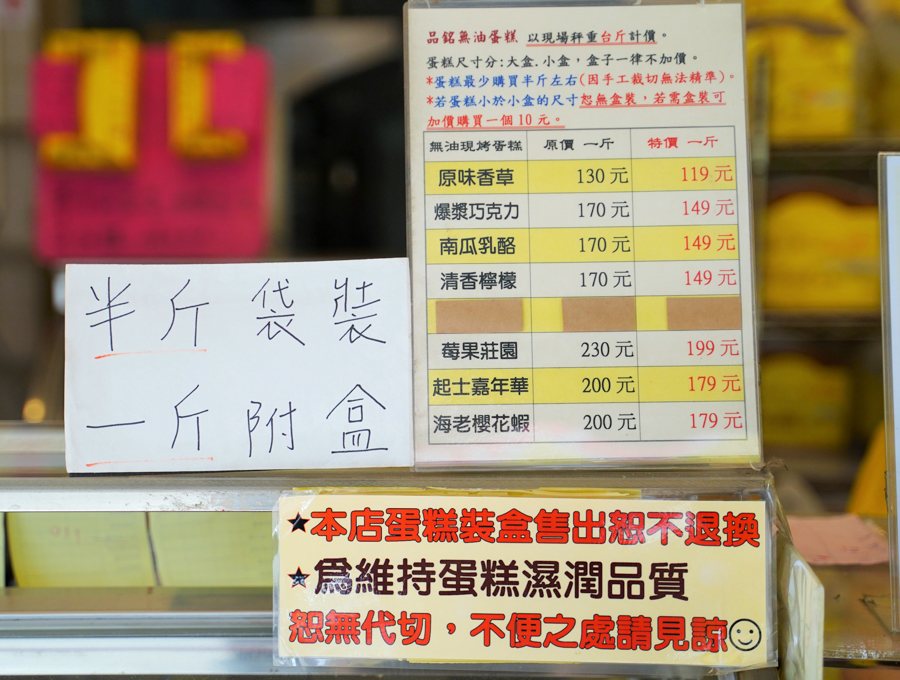 品銘無油蛋糕 以現場秤重台斤計價。
蛋糕尺寸分:大盒.小盒,盒子一律不加價。
*蛋糕最少購買半斤左右(因手工裁切無法精準)。
*若蛋糕小於小盒的尺寸恕無盒裝,若需盒裝可
加價購買一個10元。
無油現烤蛋糕 原價 一斤 特價 一斤
原味香草 130元 119元
爆漿巧克力 170元 149元
南瓜乳酪 170元 149元
清香檸檬 170元 149元
莓果莊園 230元 199元
起士嘉年華 200元 179元
海老櫻花蝦 200元 179元
半斤袋裝
一斤附盒
★本店蛋糕裝盒售出恕不退換
★為維持蛋糕濕潤品質
恕無代切,不便之處請見諒☺